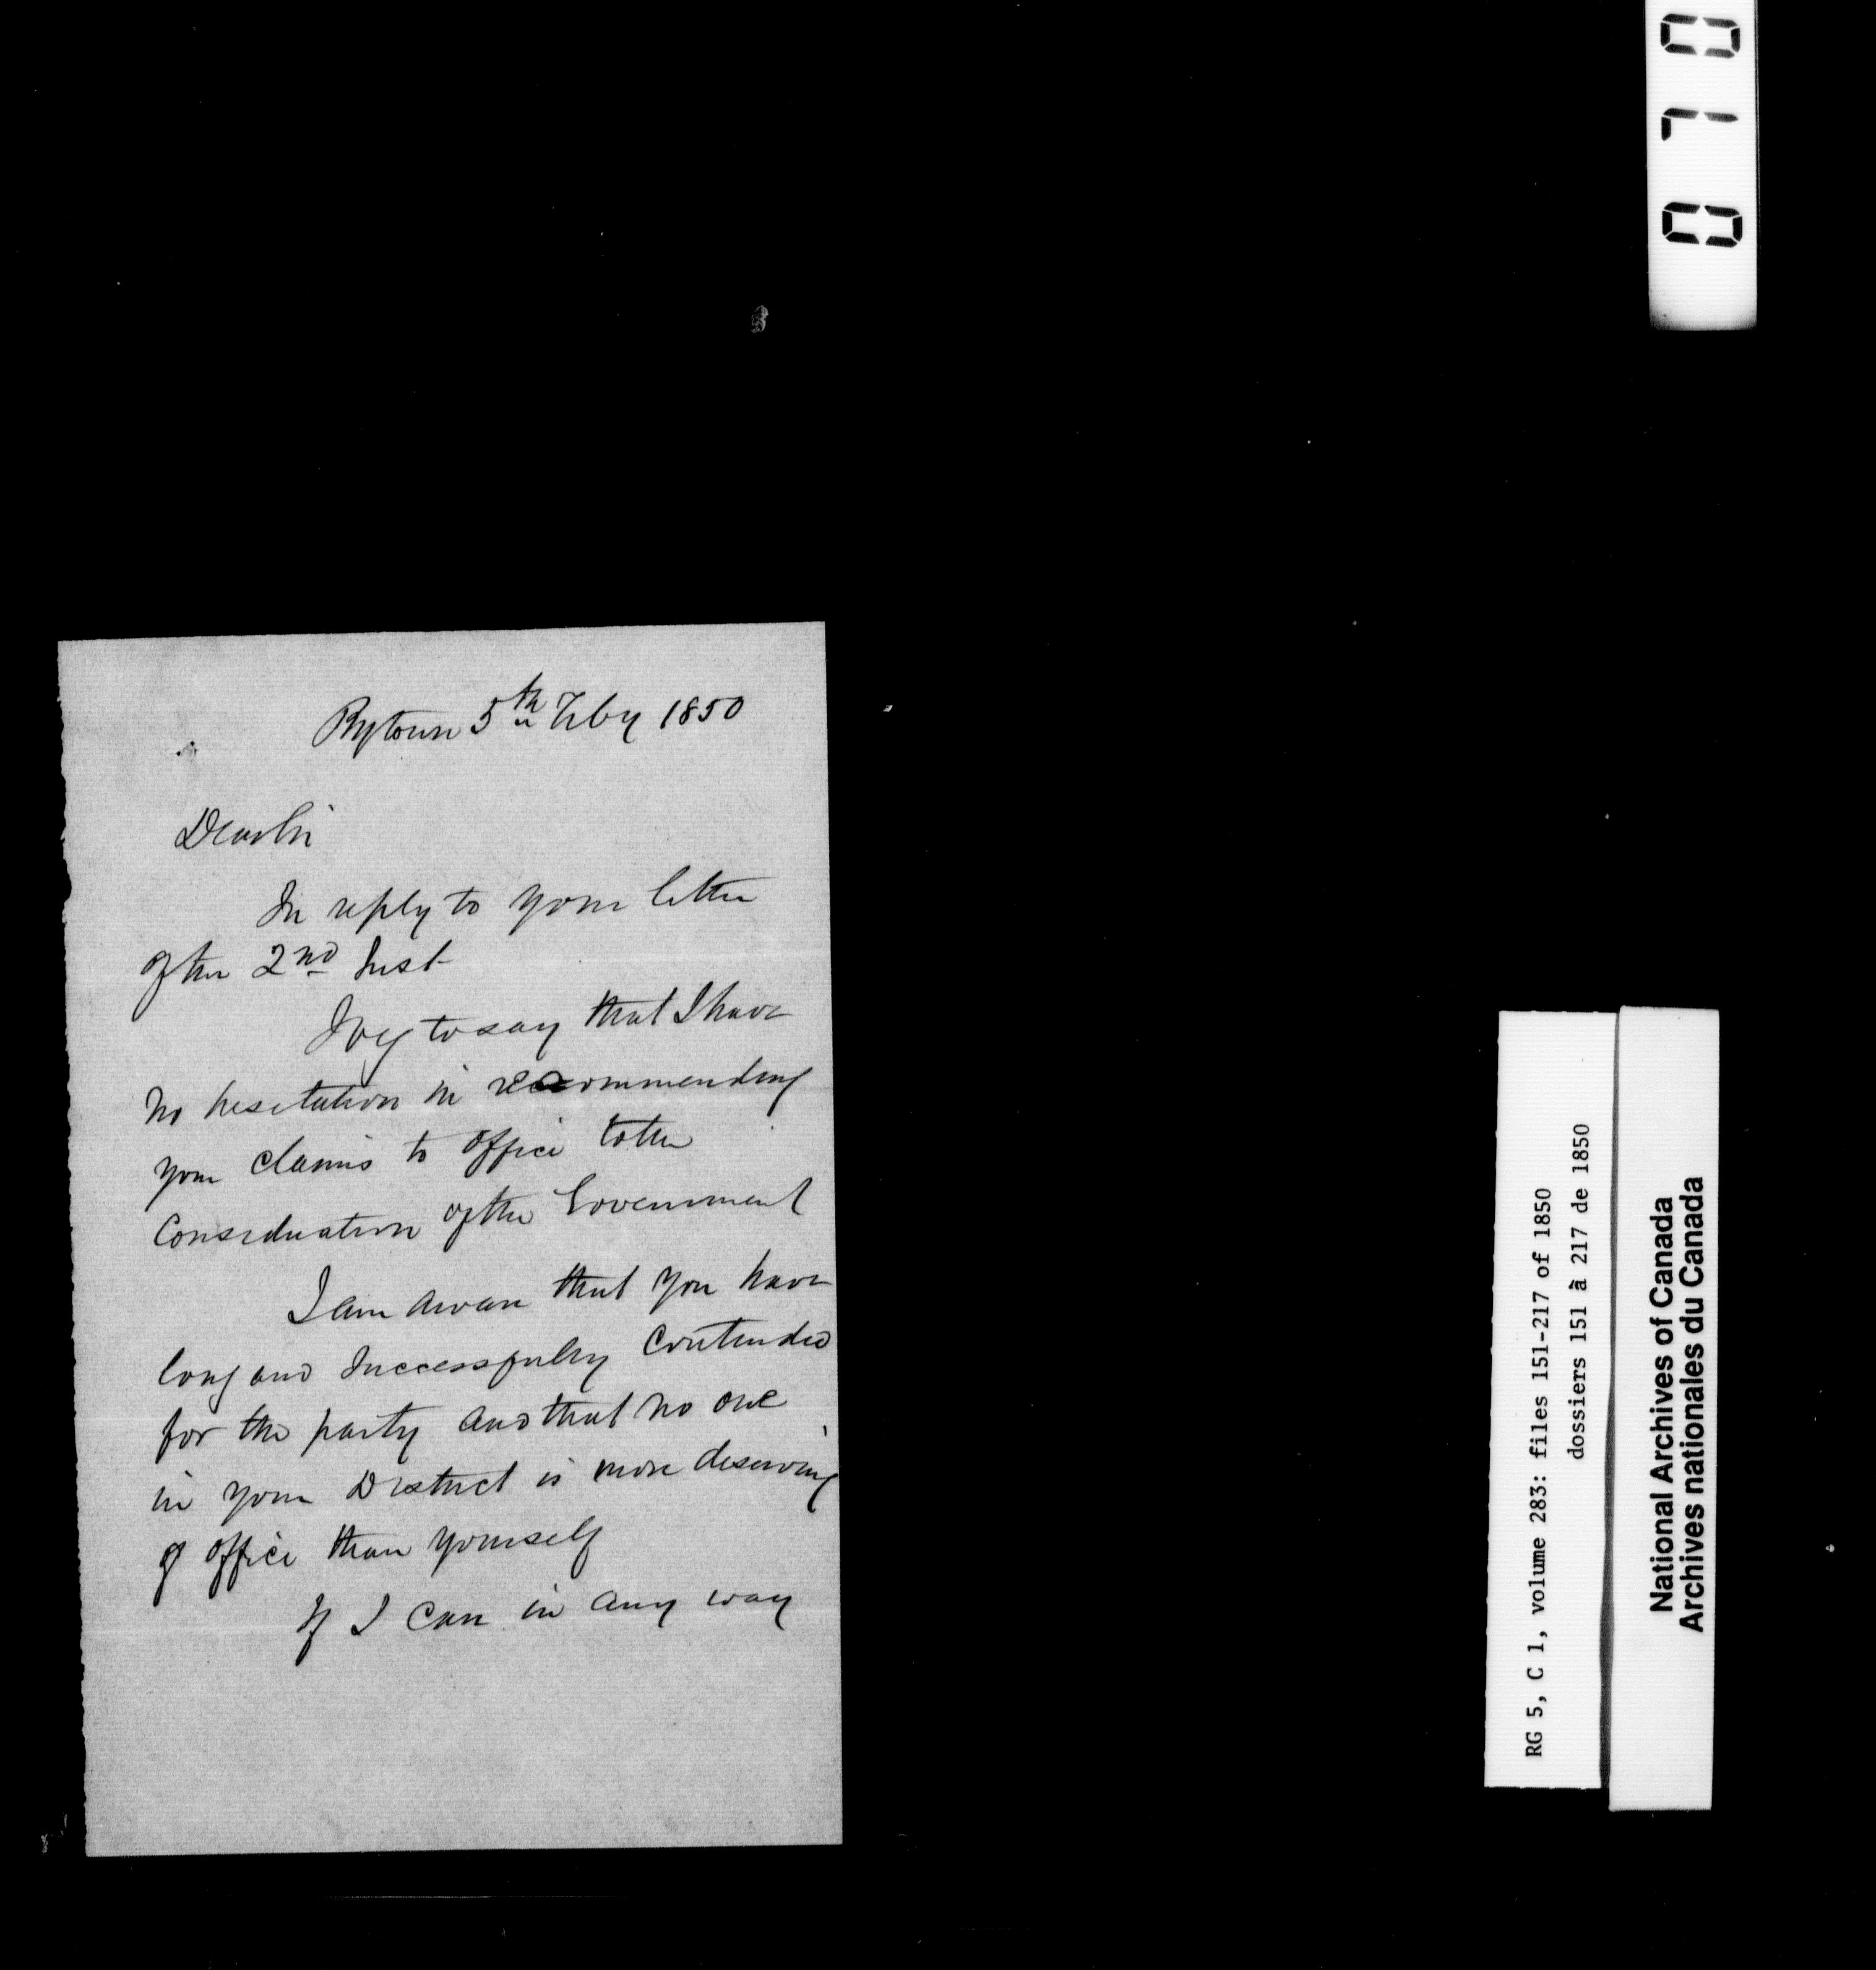 Bytown 5th Feby 1850
Dear Sir
In reply to your letter
of the 2nd Inst
I beg to say that I have
no hesitation in recommending
your claims to office to the
Consideration of the Government
I am aware that you have
long and Successfully Contended
for the party and that no one
in your District is more deserving
of office than yourself
If I can in any way
0710
RG 5, C 1, volume 283: files 151-217 of 1850
dossiers 151 à 217 de 1850
National Archives of Canada
Archives nationales du Canada